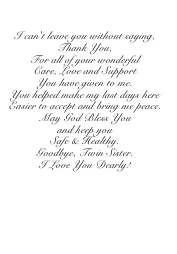 I can't leave you without saying,
Thank You,
For all of your wonderful
Care, Love and Support
You have given to me.
You helped make my last days here
Easier to accept and bring me peace.
May God Bless You
and keep you
Safe & Healthy.
Goodbye, Twin Sister.
I Love You Dearly!